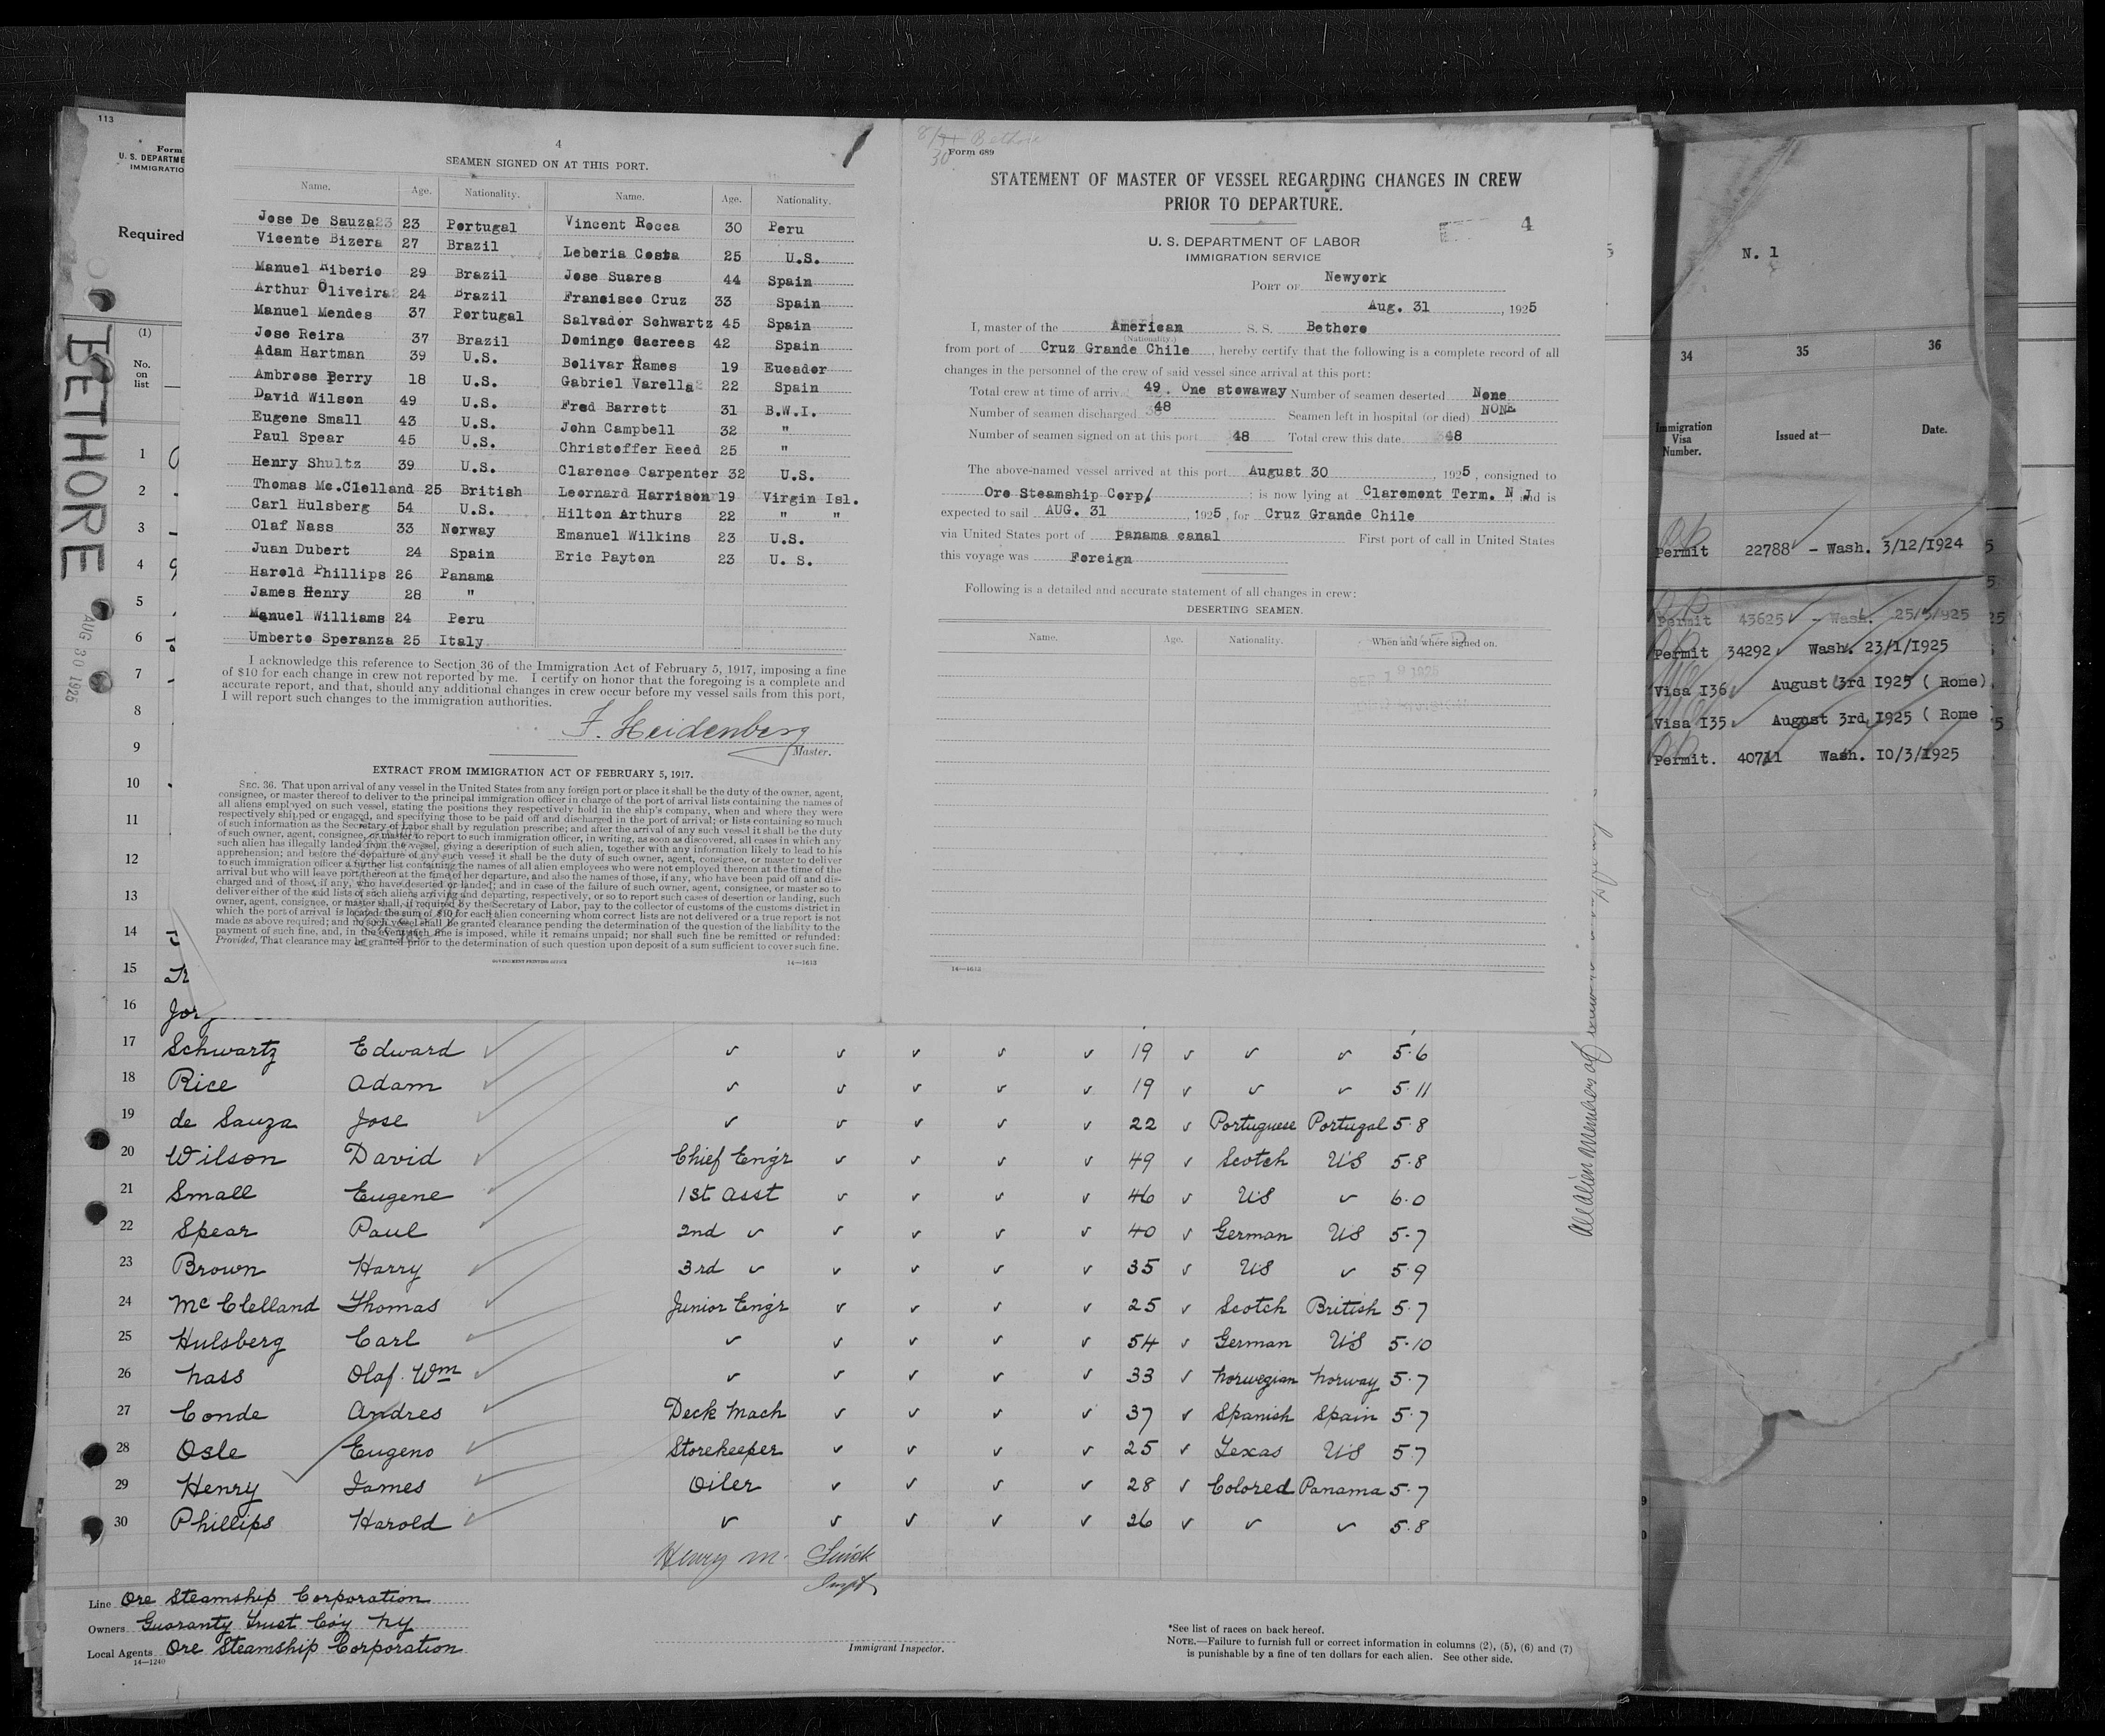 113
Form
U. S. DEPARTME
IMMIGRATIO
Required
(1)
No.
on
list
BETHORE
AUG 30 1925
1
2
3
4
5
6
7
8
9
10
11
12
13
14
15
16
4
SEAMEN SIGNED ON AT THIS PORT.
Name. Age. Nationality. Name. Age. Nationality.
Jose De Sauza 23 Portugal Vincent Rocca 30 Peru
Vicente Bizera 27 Brazil Leberia Costa 25 U.S.
Manuel Riberio 29 Brazil Jose Suares 44 Spain
Arthur Oliveira 24 Brazil Francisco Cruz 33 Spain
Manuel Mendes 37 Portugal Salvador Schwartz 45 Spain
Jose Reira 37 Brazil Domingo Cacrees 42 Spain
Adam Hartman 39 U.S. Bolivar Rames 19 Eucador
Ambrose Perry 18 U.S. Gabriel Varella 22 Spain
David Wilson 49 U.S. Fred Barrett 31 B.W.I.
Eugene Small 43 U.S. John Campbell 32 "
Paul Spear 45 U.S. Christoffer Reed 25 "
Henry Shultz 39 U.S. Clarence Carpenter 32 U.S.
Thomas Mc.Clelland 25 British Leornard Harrison 19 Virgin Isl.
Carl Hulsberg 54 U.S. Hilton Arthurs 22 " "
Olaf Nass 33 Norway Emanuel Wilkins 23 U.S.
Juan Dubert 24 Spain Eric Payton 23 U. S.
Harold Phillips 26 Panama
James Henry 28 "
Manuel Williams 24 Peru
Umberto Speranza 25 Italy
I acknowledge this reference to Section 36 of the Immigration Act of February 5, 1917, imposing a fine
of $10 for each change in crew not reported by me. I certify on honor that the foregoing is a complete and
accurate report, and that, should any additional changes in crew occur before my vessel sails from this port,
I will report such changes to the immigration authorities.
F. Heidenberg
Master.
EXTRACT FROM IMMIGRATION ACT OF FEBRUARY 5, 1917.
SEC. 36. That upon arrival of any vessel in the United States from any foreign port or place it shall be the duty of the owner, agent,
consignee, or master thereof to deliver to the principal immigration officer in charge of the port of arrival lists containing the names of
all aliens employed on such vessel, stating the positions they respectively hold in the ship's company, when and where they were
respectively shipped or engaged, and specifying those to be paid off and discharged in the port of arrival; or lists containing so much
of such information as the Secretary of Labor shall by regulation prescribe; and after the arrival of any such vessel it shall be the duty
of such owner, agent, consignee, or master to report to such immigration officer, in writing, as soon as discovered, all cases in which any
such alien has illegally landed from the vessel, giving a description of such alien, together with any information likely to lead to his
apprehension; and before the departure of any such vessel it shall be the duty of such owner, agent, consignee, or master to deliver
to such immigration officer a further list containing the names of all alien employees who were not employed thereon at the time of the
arrival but who will leave port thereon at the time of her departure, and also the names of those, if any, who have been paid off and dis-
charged and of those, if any, who have deserted or landed; and in case of the failure of such owner, agent, consignee, or master so to
deliver either of the said lists of such aliens arriving and departing, respectively, or so to report such cases of desertion or landing, such
owner, agent, consignee, or master shall, if required by the Secretary of Labor, pay to the collector of customs of the customs district in
which the port of arrival is located the sum of $10 for each alien concerning whom correct lists are not delivered or a true report is not
made as above required; and no such vessel shall be granted clearance pending the determination of the question of the liability to the
payment of such fine, and, in the event such fine is imposed, while it remains unpaid; nor shall such fine be remitted or refunded:
Provided, That clearance may be granted prior to the determination of such question upon deposit of a sum sufficient to cover such fine.
GOVERNMENT PRINTING OFFICE 14—1613
8/31 Bethore
30
Form 689
STATEMENT OF MASTER OF VESSEL REGARDING CHANGES IN CREW
PRIOR TO DEPARTURE.
4
U. S. DEPARTMENT OF LABOR
IMMIGRATION SERVICE
PORT OF Newyork
Aug. 31, 1925
I, master of the American S. S. Bethore
(Nationality.)
from port of Cruz Grande Chile, hereby certify that the following is a complete record of all
changes in the personnel of the crew of said vessel since arrival at this port:
Total crew at time of arriv. 49. One stowaway Number of seamen deserted None
Number of seamen discharged 48 Seamen left in hospital (or died) NONE
Number of seamen signed on at this port 48 Total crew this date 48
The above-named vessel arrived at this port August 30, 1925, consigned to
Ore Steamship Corp/ ; is now lying at Claremont Term. N J, and is
expected to sail AUG. 31, 1925, for Cruz Grande Chile
via United States port of Panama canal First port of call in United States
this voyage was Foreign
Following is a detailed and accurate statement of all changes in crew:
DESERTING SEAMEN.
Name. Age. Nationality. When and where signed on.
SEP 19 1925
14—1613
N. 1
34 35 36
Immigration Visa Number. Issued at— Date.
Permit 22788 - Wash. 3/12/1924
Permit 43625 - Wash. 25/5/1925
Permit 34292 Wash. 23/1/1925
Visa I36 August 3rd I925 ( Rome)
Visa I35 August 3rd I925 ( Rome
Permit. 40711 Wash. I0/3/I925
All Alien members of
17 Schwartz Edward 19 5.6
18 Rice Adam 19 5.11
19 de Sauza Jose 22 Portuguese Portugal 5.8
20 Wilson David Chief Engr 49 Scotch US 5.8
21 Small Eugene 1st Asst 46 US 6.0
22 Spear Paul 2nd 40 German US 5.7
23 Brown Harry 3rd 35 US 5.9
24 McClelland Thomas Junior Engr 25 Scotch British 5.7
25 Hulsberg Carl 54 German US 5.10
26 Nass Olaf. Wm 33 Norwegian Norway 5.7
27 Conde Andres Deck Mach 37 Spanish Spain 5.7
28 Osle Eugeno Storekeeper 25 Texas US 5.7
29 Henry James Oiler 28 Colored Panama 5.7
30 Phillips Harold 26 5.8
Henry M.
Inspt
Line Ore Steamship Corporation
Owners Guaranty Trust Co'y NY
Local Agents Ore Steamship Corporation
14—1240
Immigrant Inspector.
*See list of races on back hereof.
NOTE.—Failure to furnish full or correct information in columns (2), (5), (6) and (7)
is punishable by a fine of ten dollars for each alien. See other side.